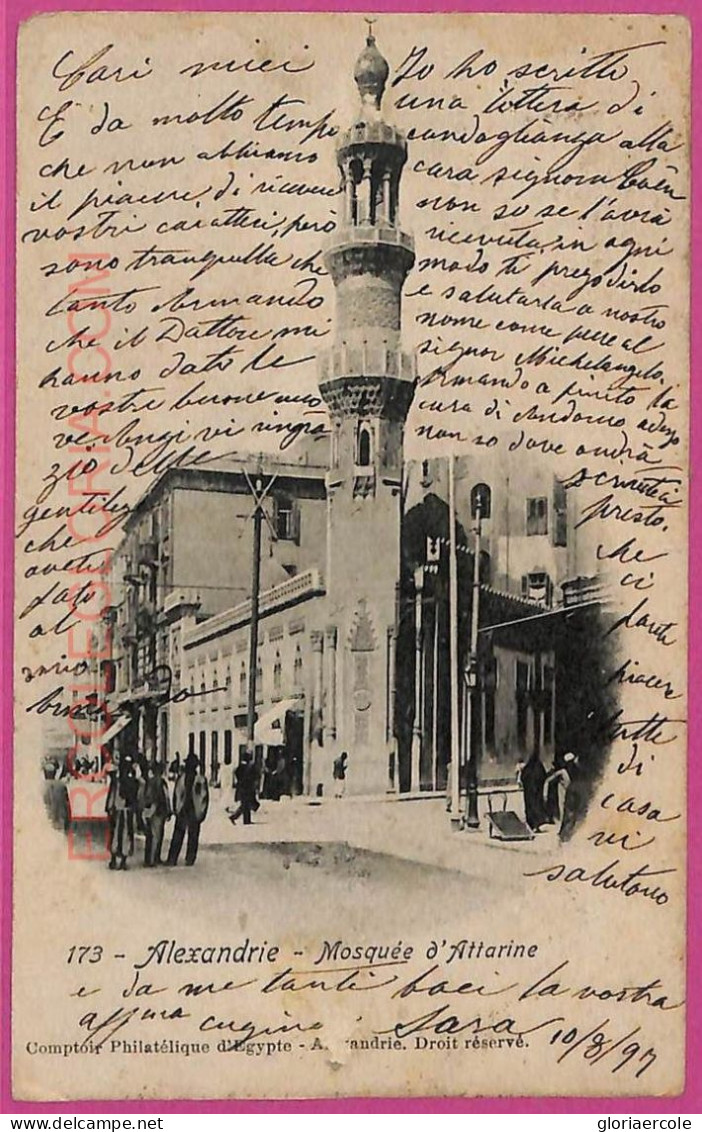 Cari miei
È da molto tempo
che non abbiamo
il piacere di ricevere
vostri caratteri, però
sono tranquilla che
tanto Armando
che il Dottore mi
hanno dato le
vostre buone nuo
ve. Anzi vi ringra
zio delle
gentilezze
che
avete
dato
al
mio
Io ho scritto
una lettera di
condoglianza alla
cara signora
non so se l'avrà
ricevuta, in ogni
modo ti prego dirlo
e salutarla a nostro
nome come pure al
signor Michelangelo.
Armando a finito la
cura di Andorno adesso
non so dove andrà
scriveteci
presto.
che
ci
farete
piacere
tutti
di
casa
vi
salutano
173 - Alexandrie - Mosquée d'Attarine
e da me tanti baci la vostra
affma cugina Sara 10/8/97
Comptoir Philatélique d'Egypte - A andrie. Droit réservé.
ERCOLEGLORIA.COM
gloriaercole
delcampe.net